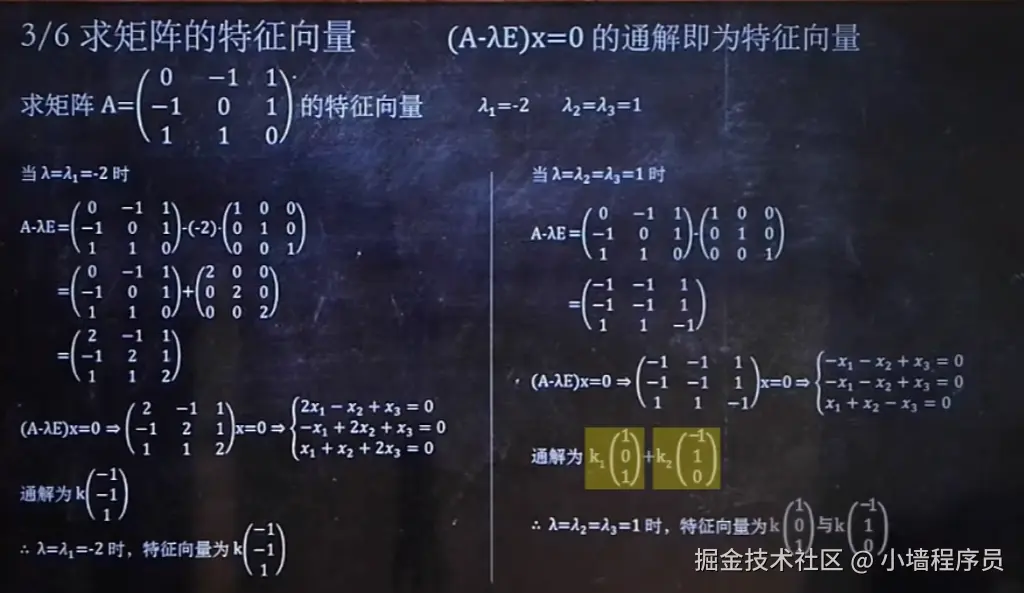 3/6 求矩阵的特征向量
(A-λE)x=0 的通解即为特征向量
求矩阵 A=(0 −1 1
−1 0 1
1 1 0) 的特征向量
λ₁=-2 λ₂=λ₃=1
当 λ=λ₁=-2 时
A-λE=(0 −1 1
−1 0 1
1 1 0)-(-2)·(1 0 0
0 1 0
0 0 1)
=(0 −1 1
−1 0 1
1 1 0)+(2 0 0
0 2 0
0 0 2)
=(2 −1 1
−1 2 1
1 1 2)
(A-λE)x=0 ⇒ (2 −1 1
−1 2 1
1 1 2)x=0 ⇒ {2x₁ − x₂ + x₃ = 0
−x₁ + 2x₂ + x₃ = 0
x₁ + x₂ + 2x₃ = 0
通解为 k(−1
−1
1)
∴ λ=λ₁=-2 时，特征向量为 k(−1
−1
1)
当 λ=λ₂=λ₃=1 时
A-λE=(0 −1 1
−1 0 1
1 1 0)-(1 0 0
0 1 0
0 0 1)
=(−1 −1 1
−1 −1 1
1 1 −1)
(A-λE)x=0 ⇒ (−1 −1 1
−1 −1 1
1 1 −1)x=0 ⇒ {−x₁ − x₂ + x₃ = 0
−x₁ − x₂ + x₃ = 0
x₁ + x₂ − x₃ = 0
通解为 k₁(1
0
1)+k₂(−1
1
0)
∴ λ=λ₂=λ₃=1 时，特征向量为 k(1
0
1)与 k(−1
1
0)
掘金技术社区 @ 小墙程序员